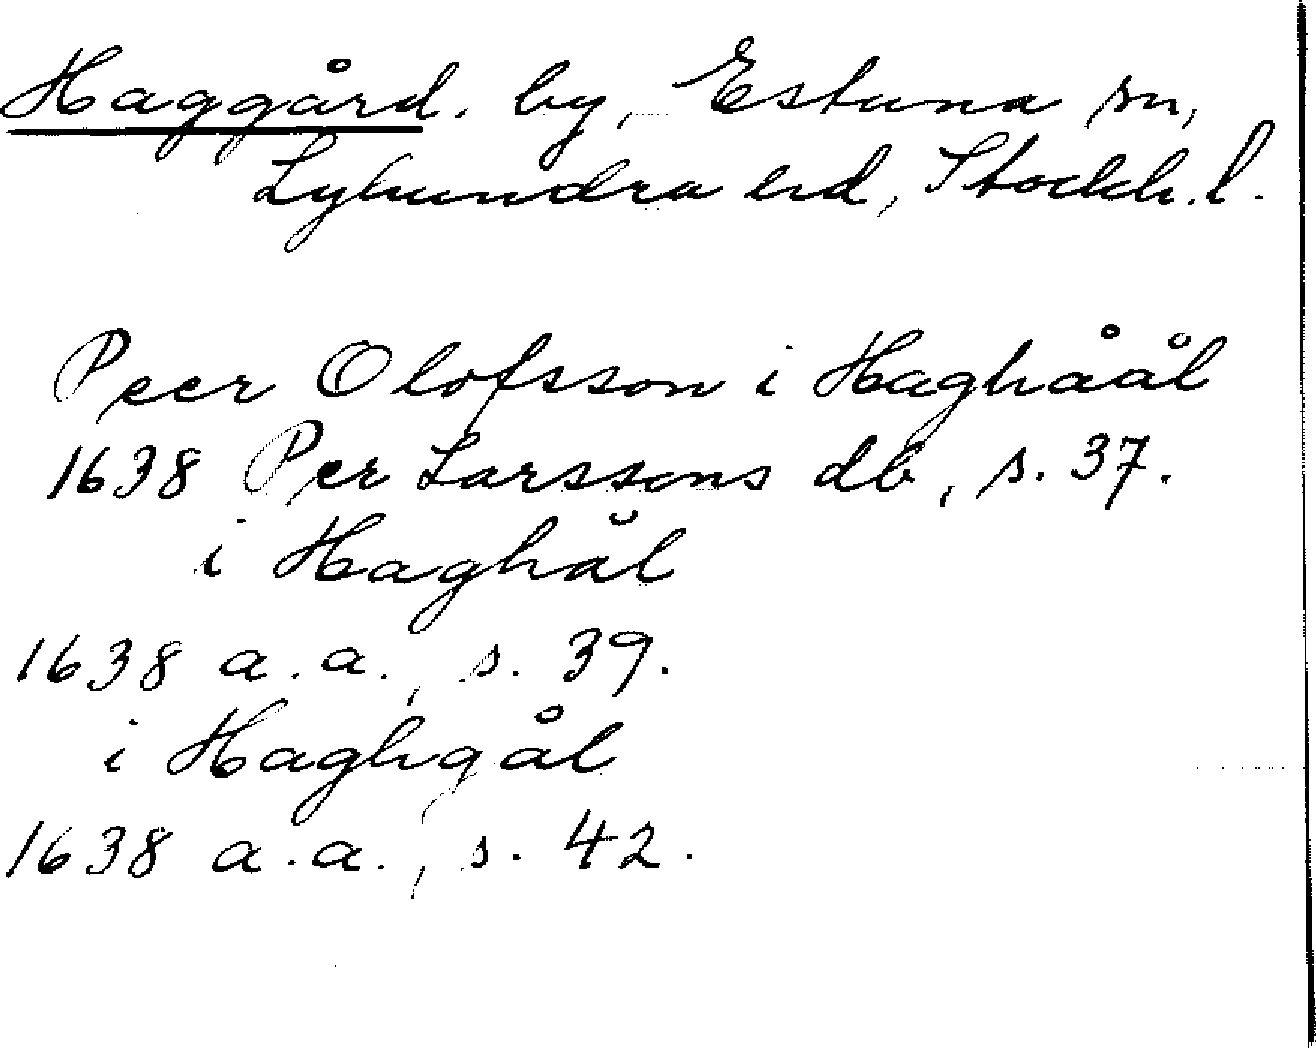 Haggård, by, Estuna sn,
Lyhundra hd, Stockh. l.
Peer Olofsson i Haghåål
1638 Per Larssons db, s. 37.
i Haghål
1638 a.a., s. 39.
i Haghgål
1638 a.a., s. 42.